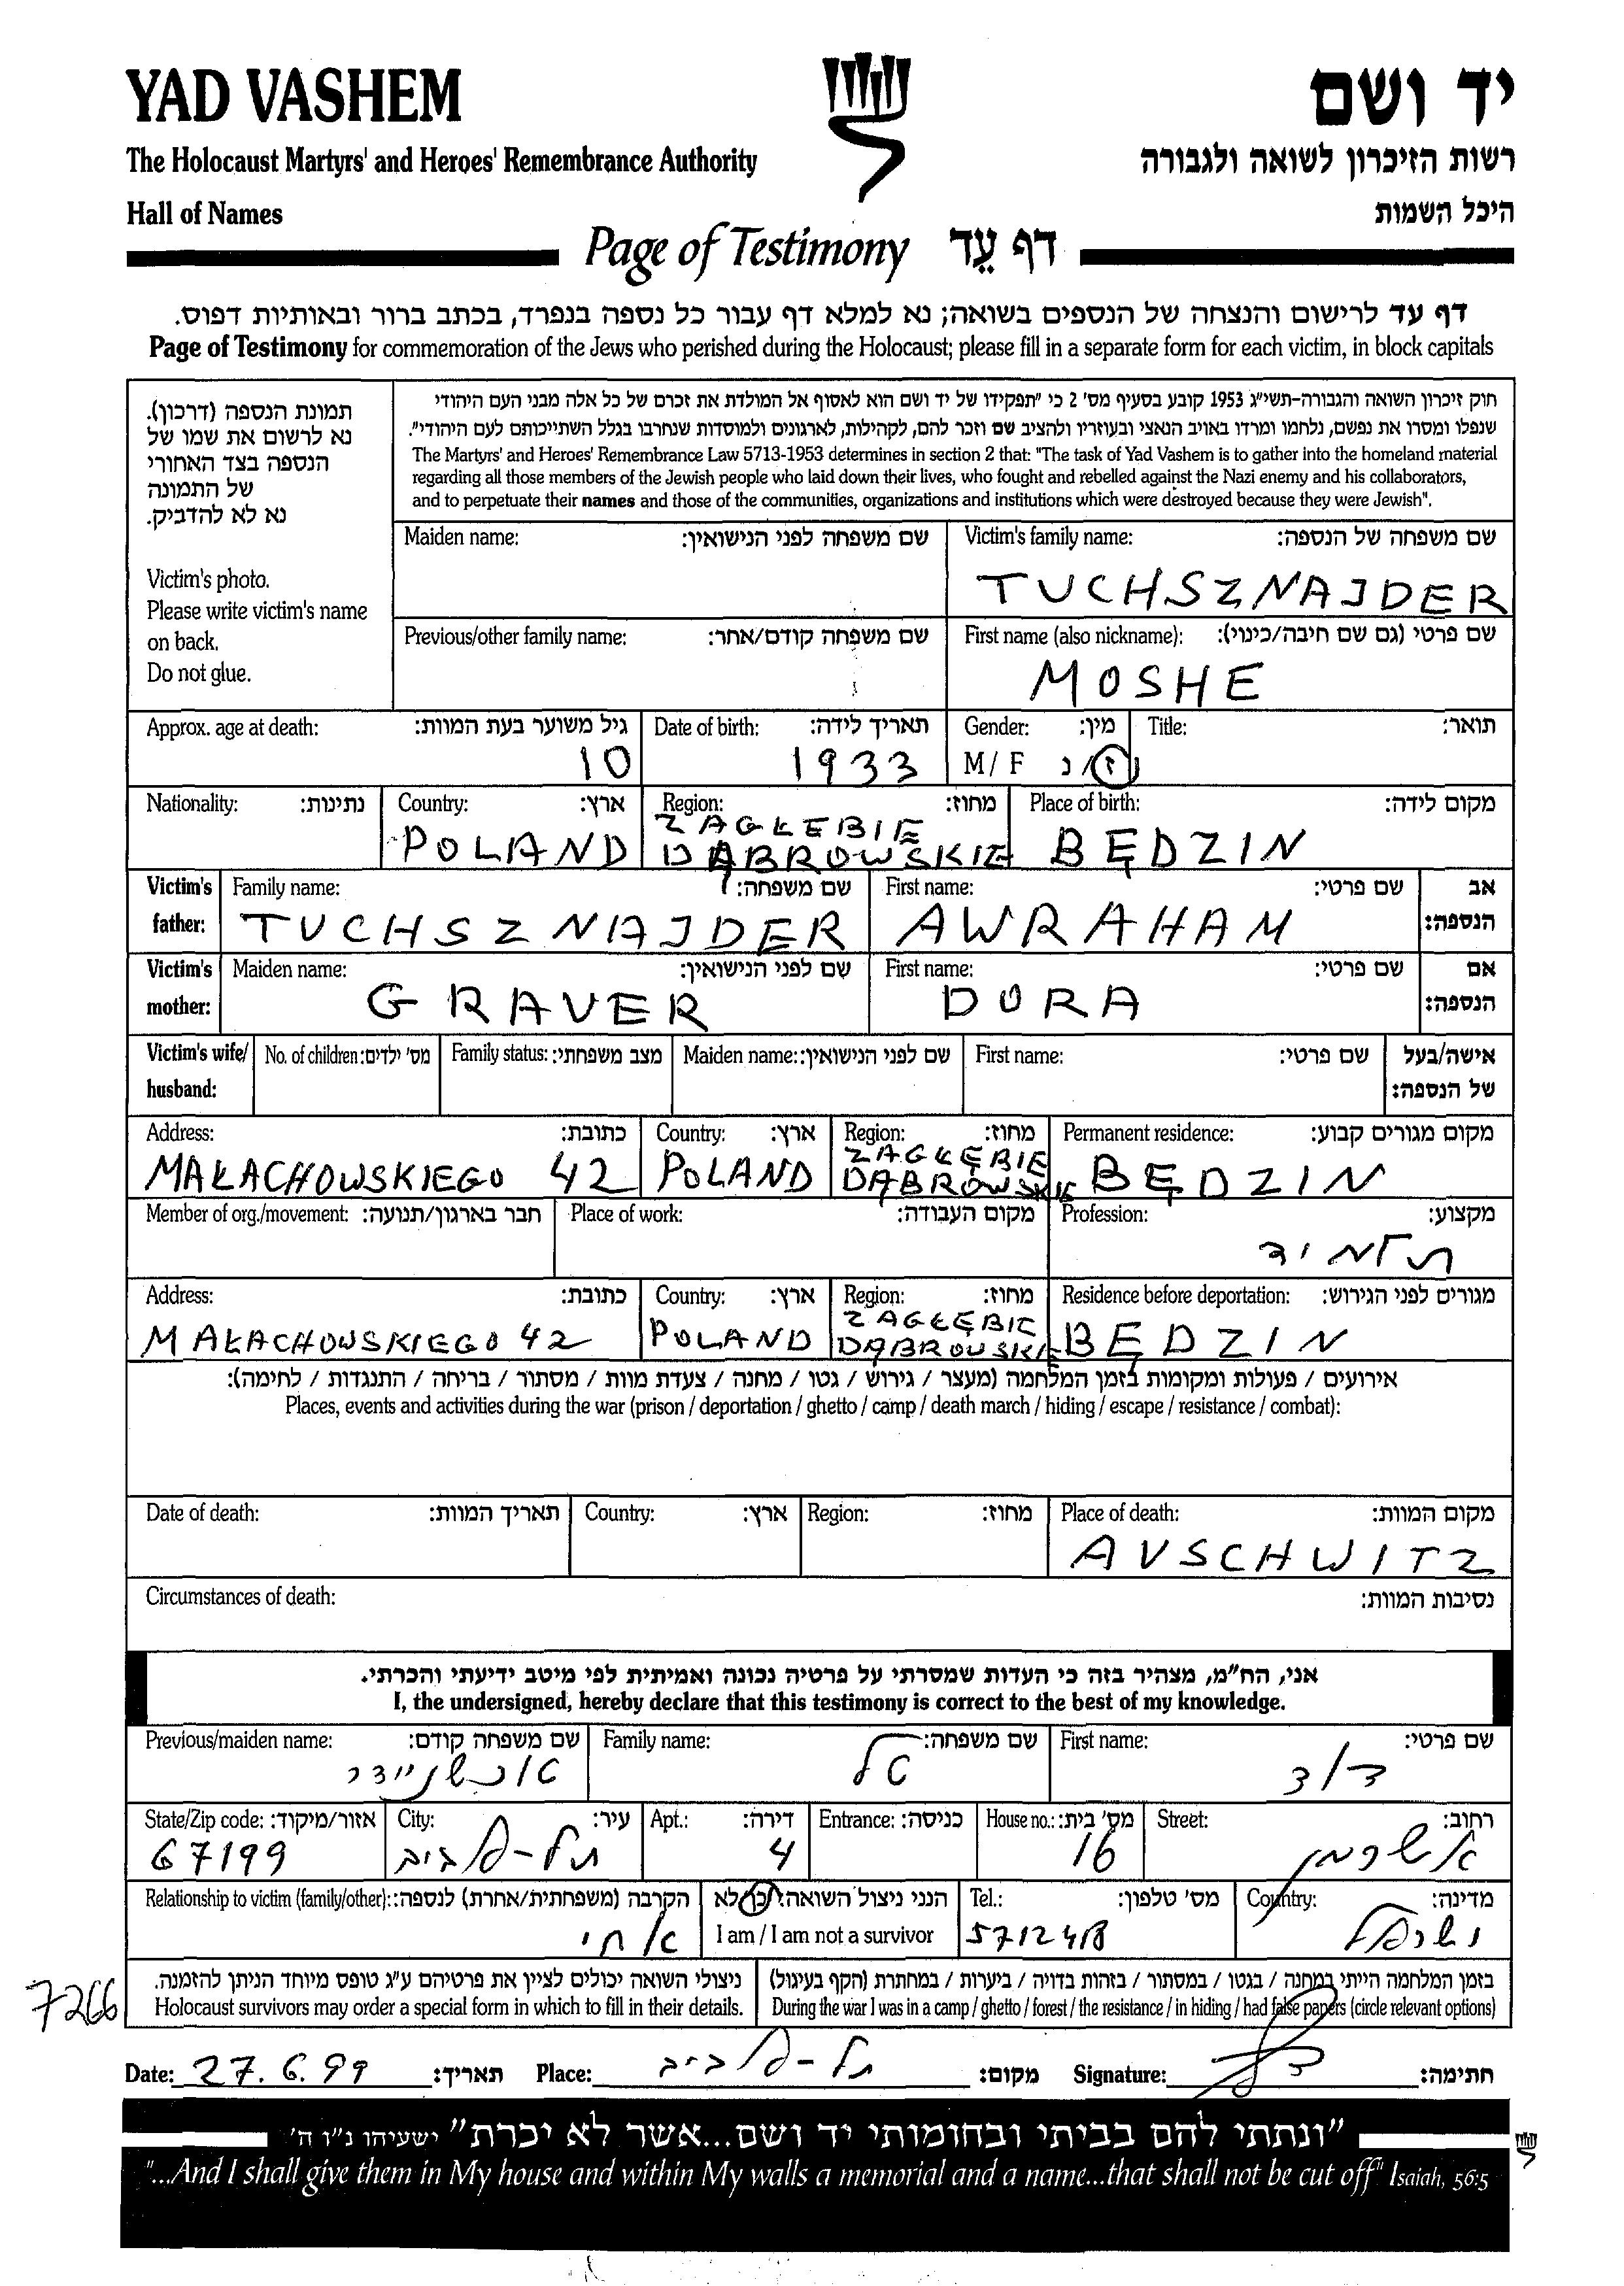 YAD VASHEM
יד ושם
The Holocaust Martyrs' and Heroes' Remembrance Authority
רשות הזיכרון לשואה ולגבורה
Hall of Names
היכל השמות
Page of Testimony דף עֵד
דף עד לרישום והנצחה של הנספים בשואה; נא למלא דף עבור כל נספה בנפרד, בכתב ברור ובאותיות דפוס.
Page of Testimony for commemoration of the Jews who perished during the Holocaust; please fill in a separate form for each victim, in block capitals
תמונת הנספה (דרכון).
נא לרשום את שמו של
הנספה בצד האחורי
של התמונה
נא לא להדביק.
Victim's photo.
Please write victim's name
on back.
Do not glue.
חוק זיכרון השואה והגבורה-תשי״ג 1953 קובע בסעיף מס' 2 כי "תפקידו של יד ושם הוא לאסוף אל המולדת את זכרם של כל אלה מבני העם היהודי
שנפלו ומסרו את נפשם, נלחמו ומרדו באויב הנאצי ובעוזריו ולהציב שם וזכר להם, לקהילות, לארגונים ולמוסדות שנחרבו בגלל השתייכותם לעם היהודי".
The Martyrs' and Heroes' Remembrance Law 5713-1953 determines in section 2 that: "The task of Yad Vashem is to gather into the homeland material
regarding all those members of the Jewish people who laid down their lives, who fought and rebelled against the Nazi enemy and his collaborators,
and to perpetuate their names and those of the communities, organizations and institutions which were destroyed because they were Jewish".
Maiden name: שם משפחה לפני הנישואין:
Victim's family name: שם משפחה של הנספה:
TUCHSZNAJDER
Previous/other family name: שם משפחה קודם/אחר:
First name (also nickname): שם פרטי (גם שם חיבה/כינוי):
MOSHE
Approx. age at death: גיל משוער בעת המוות:
10
Date of birth: תאריך לידה:
1933
Gender: מין:
M/ F ז/נ
Title: תואר:
Nationality: נתינות:
Country: ארץ:
POLAND
Region: מחוז:
ZAGŁĘBIE
DĄBROWSKIE
Place of birth: מקום לידה:
BĘDZIN
Victim's father:
Family name: שם משפחה:
TUCHSZNAJDER
First name: שם פרטי:
AWRAHAM
אב הנספה:
Victim's mother:
Maiden name: שם לפני הנישואין:
GRAVER
First name: שם פרטי:
DORA
אם הנספה:
Victim's wife/ husband:
No. of children: מס' ילדים:
Family status: מצב משפחתי:
Maiden name: שם לפני הנישואין:
First name: שם פרטי:
אישה/בעל של הנספה:
Address: כתובת:
MAŁACHOWSKIEGO 42
Country: ארץ:
POLAND
Region: מחוז:
ZAGŁĘBIE
DĄBROWSKIE
Permanent residence: מקום מגורים קבוע:
BĘDZIN
Member of org./movement: חבר בארגון/תנועה:
Place of work: מקום העבודה:
Profession: מקצוע:
תלמיד
Address: כתובת:
MAŁACHOWSKIEGO 42
Country: ארץ:
POLAND
Region: מחוז:
ZAGŁĘBIE
DĄBROWSKIE
Residence before deportation: מגורים לפני הגירוש:
BĘDZIN
אירועים / פעולות ומקומות בזמן המלחמה (מעצר / גירוש / גטו / מחנה / צעדת מוות / מסתור / בריחה / התנגדות / לחימה):
Places, events and activities during the war (prison / deportation / ghetto / camp / death march / hiding / escape / resistance / combat):
Date of death: תאריך המוות:
Country: ארץ:
Region: מחוז:
Place of death: מקום המוות:
AUSCHWITZ
Circumstances of death: נסיבות המוות:
אני, הח״מ, מצהיר בזה כי העדות שמסרתי על פרטיה נכונה ואמיתית לפי מיטב ידיעתי והכרתי.
I, the undersigned, hereby declare that this testimony is correct to the best of my knowledge.
Previous/maiden name: שם משפחה קודם:
טוכשניידר
Family name: שם משפחה:
טל
First name: שם פרטי:
דוד
State/Zip code: אזור/מיקוד:
67199
City: עיר:
תל-אביב
Apt.: דירה:
4
Entrance: כניסה:
House no.: מס' בית:
16
Street: רחוב:
אשרמן
Relationship to victim (family/other): הקרבה (משפחתית/אחרת) לנספה:
אחי
הנני ניצול השואה: כן/לא
I am / I am not a survivor
Tel.: מס' טלפון:
Country: מדינה:
ישראל
ניצולי השואה יכולים לציין את פרטיהם ע״ג טופס מיוחד הניתן להזמנה.
Holocaust survivors may order a special form in which to fill in their details.
בזמן המלחמה הייתי במחנה / בגטו / במסתור / בזהות בדויה / ביערות / במחתרת (הקף בעיגול)
During the war I was in a camp / ghetto / forest / the resistance / in hiding / had false papers (circle relevant options)
7266
Date: 27.6.99 תאריך:
Place: תל-אביב מקום:
Signature: חתימה:
"ונתתי להם בביתי ובחומותי יד ושם...אשר לא יכרת" ישעיהו נ״ו ה'
"...And I shall give them in My house and within My walls a memorial and a name...that shall not be cut off" Isaiah, 56:5